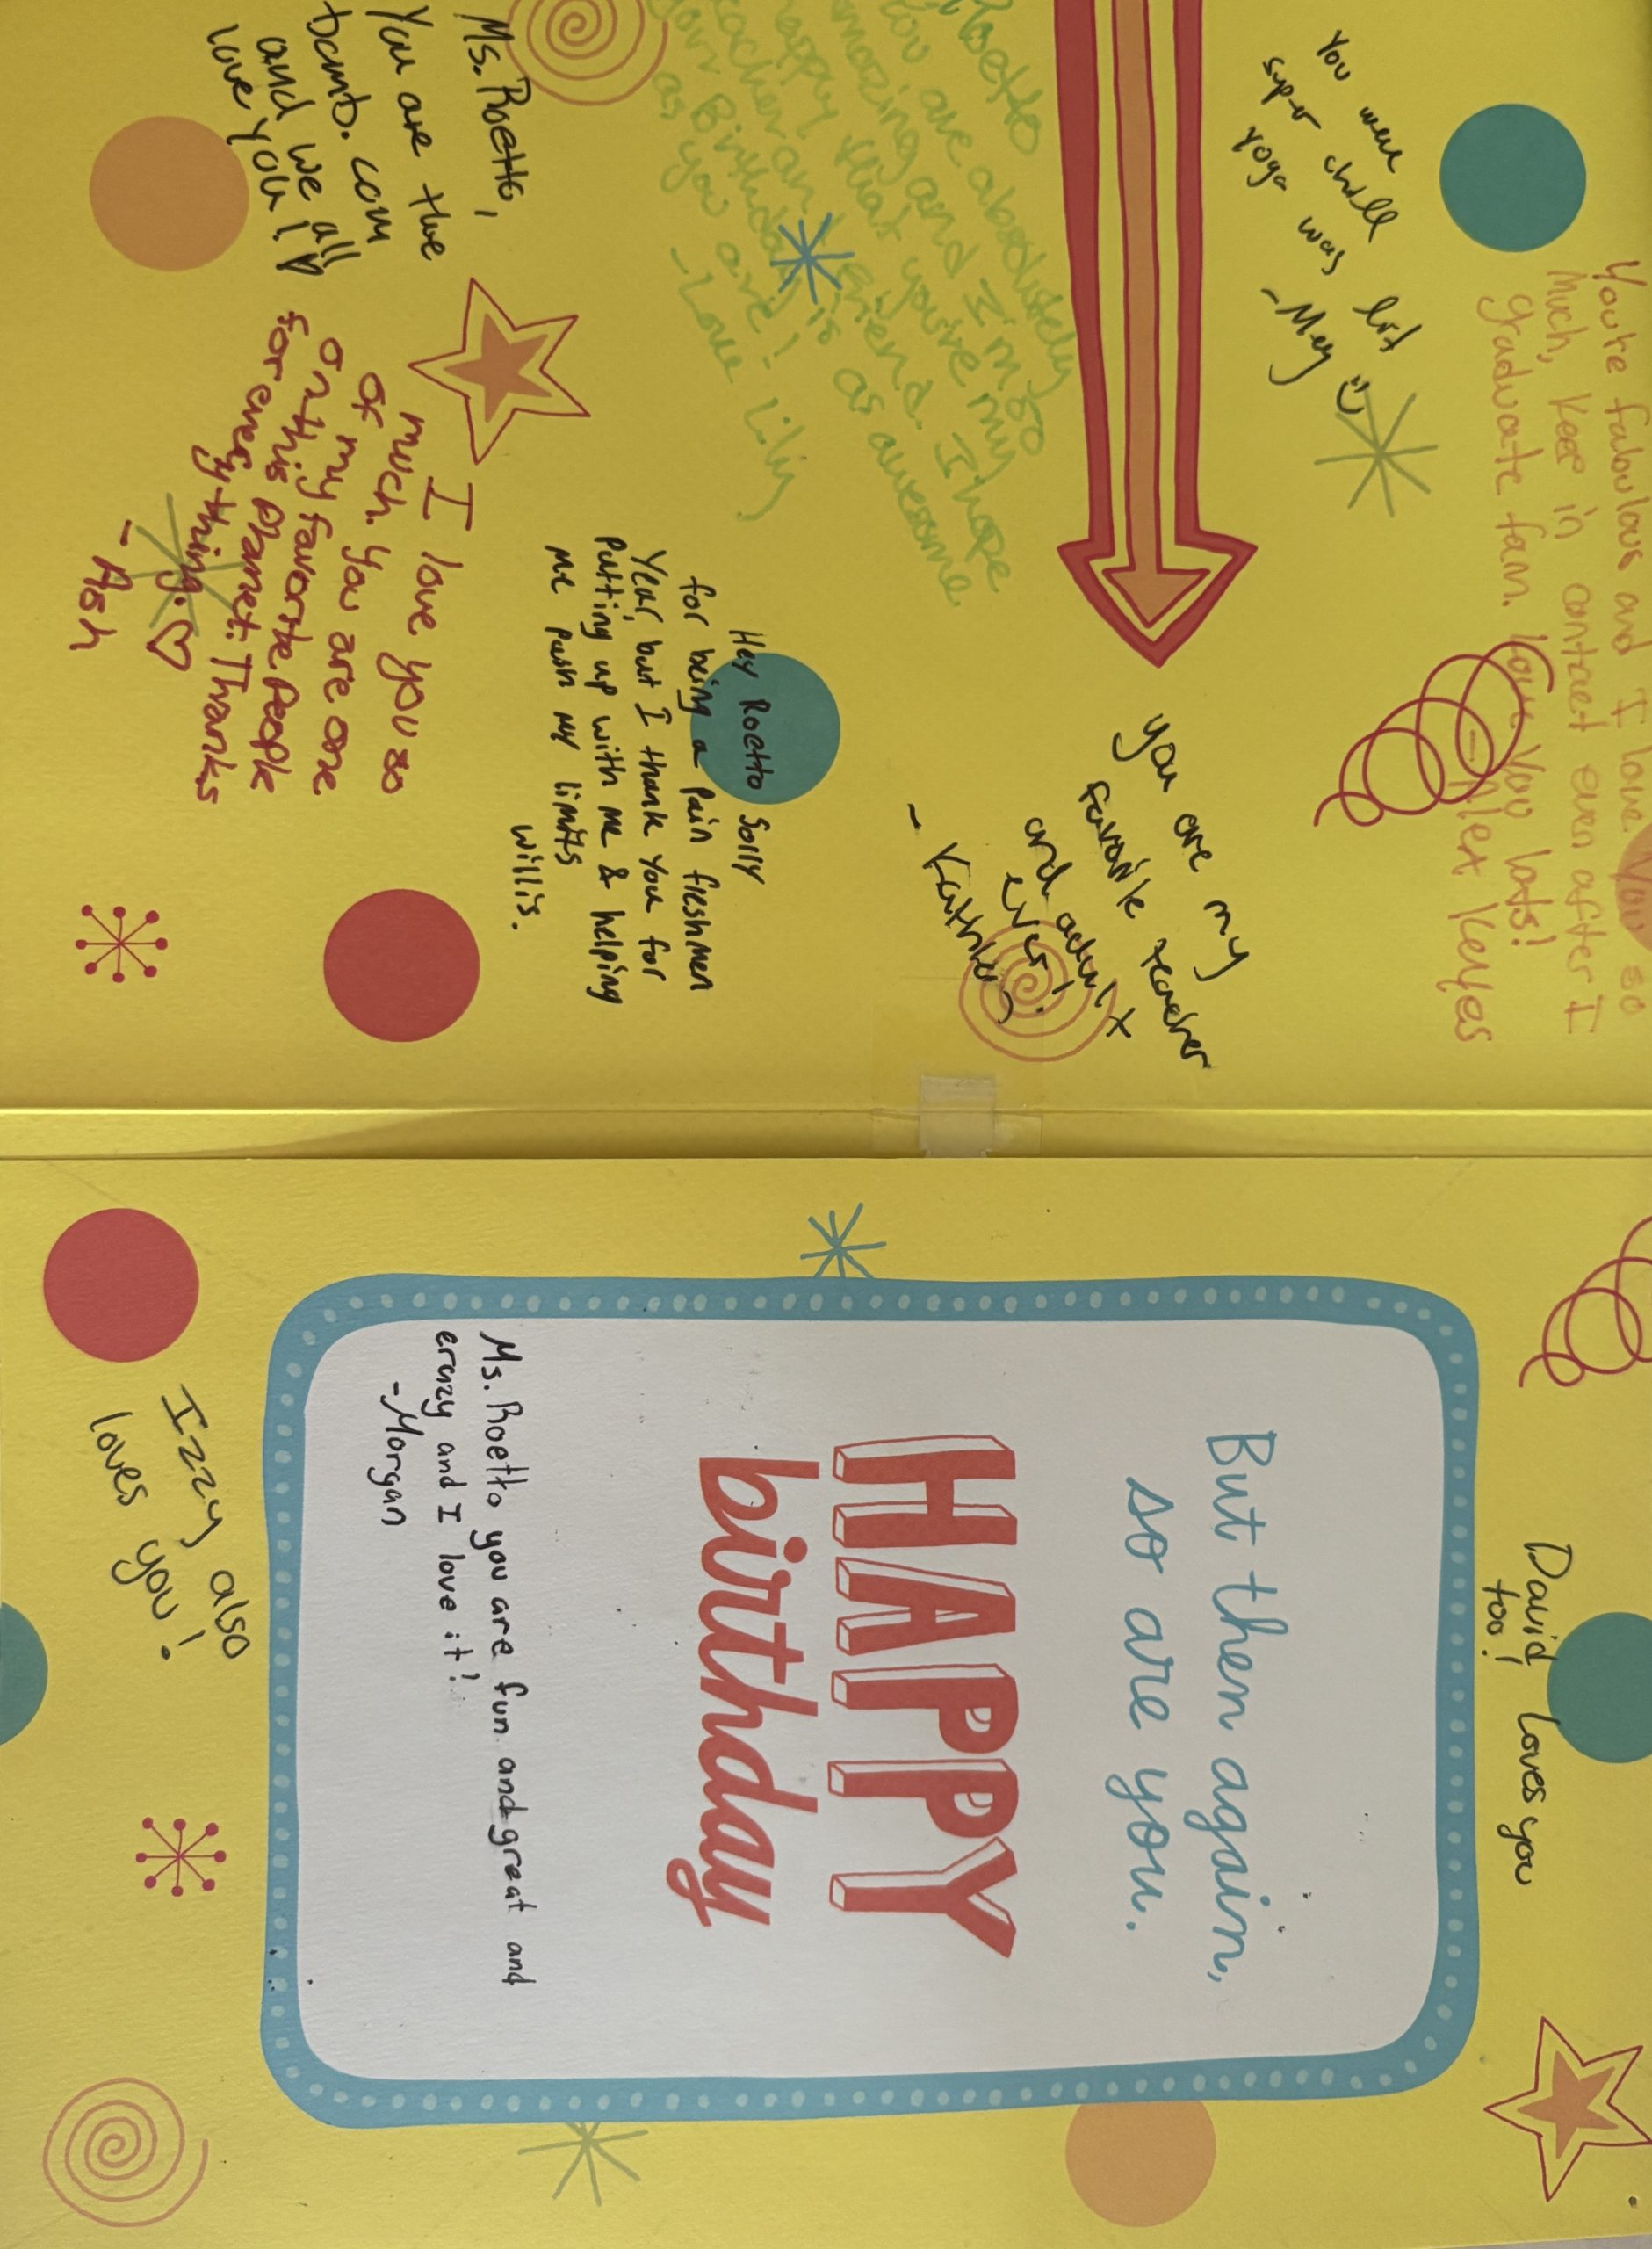 You're fabulous and I love you so
much, keep in contact even after I
graduate fam. Love you lots!
- Alex Keyes
You were
super chill
yoga was lit
- Mey
Roetto
You are absolutely
amazing and I'm so
happy that you're my
teacher and friend. I hope
your Birthday is as awesome
as you are!
- Love Lily
you are my
favorite teacher
and adult
ever!
Hey Roetto Solly
for being a pain freshmen
Year, but I thank you for
putting up with me & helping
me push my limits
Willis.
Ms. Roetto,
You are the
bomb.com
and we all
love you! ♡
I love you so
much. You are one
of my favorite people
on this planet. Thanks
for everything. ♡
- Ash
David loves you
too!
But then again,
so are you.
HAPPY
birthday
Ms. Roetto you are fun and great and
crazy and I love it!
- Morgan
Izzy also
loves you!